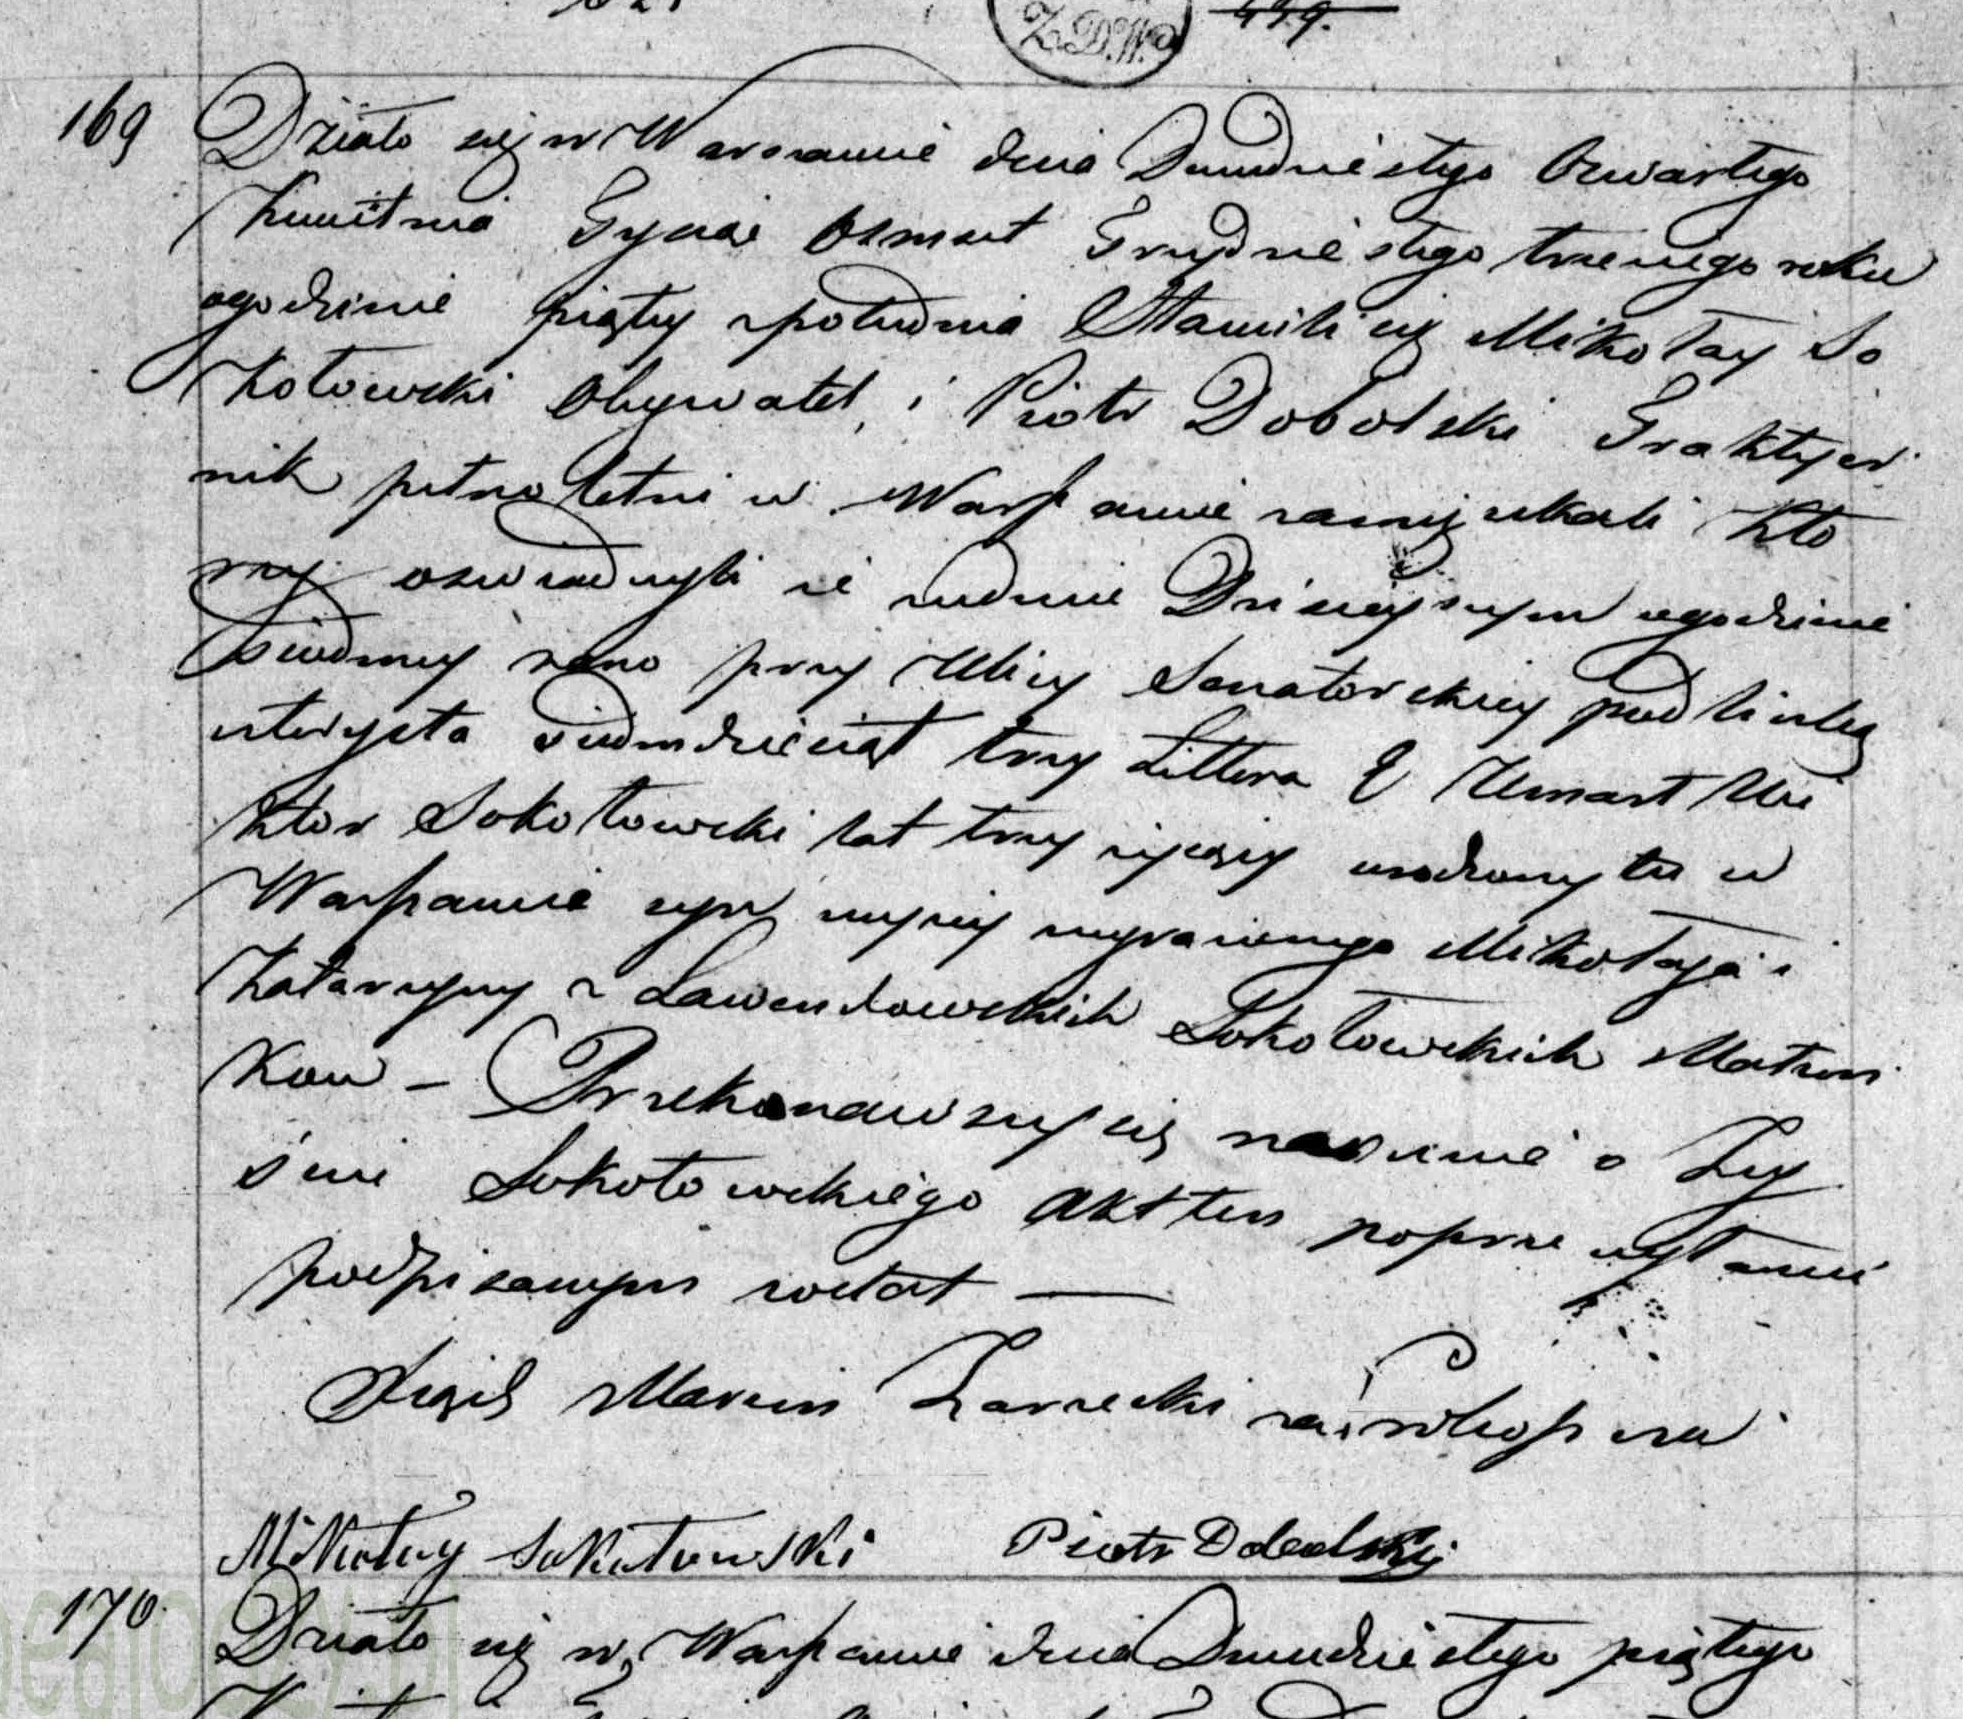 Z.D.W.
449.
169
Działo się w Warszawie dnia Dwudziestego Czwartego
Kwietnia Tysiąc Osmset Trzydziestego trzeciego roku
ogodzinie piąty społudnia Stawili się Mikołay So
kołowski Obywatel, i Piotr Dobolski Traktyer
nik pełnoletni w Warszawie zamięszkali Któ
rzy oswiadczyli że wdniu Dzisieyszym ogodzinie
siodmey rano przy Ulicy Senatorskiey pod liczbą
czterysta siedmdziesiąt trzy Littera Umarł Wi
ktor Sokołowski lat trzy żyjący urodzony tu w
Warszawie syn wyżey wyrażonego Mikołaja i
Katarzyny z Lawendowskich Sokołowskich Małżon
ków – Przekonawszy się naocznie o Zey
sciu Sokołowskiego Akt ten poprzeczytaniu
podpisanym został —
Xiądz Marcin Zarzecki za Proboszcza
Mikołay Sokołowski Piotr Dobolski
170.
Działo się w Warszawie dnia Dwudziestego piątego